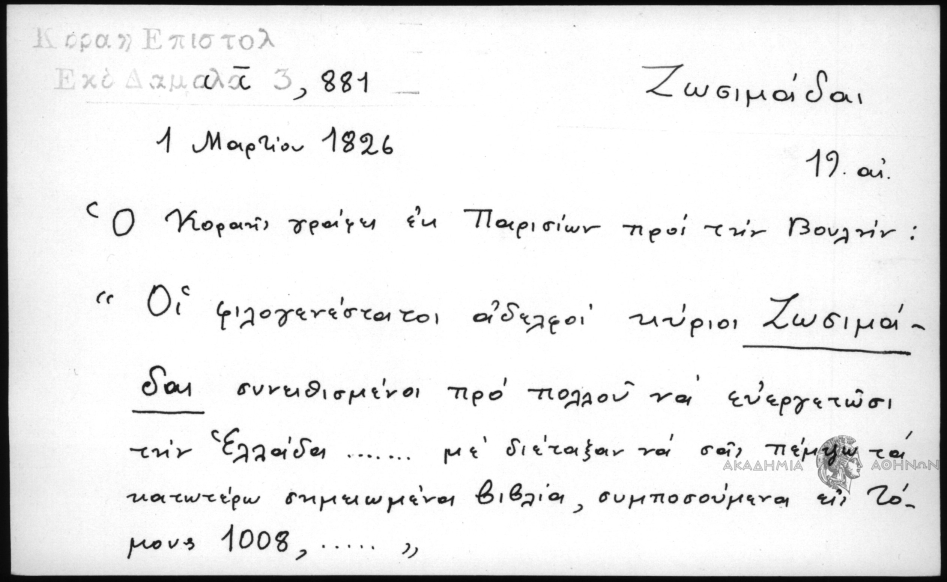 Κοραη Επιστολ
Εκδ Δαμαλᾶ 3, 881
Ζωσιμάδαι
1 Μαρτίου 1826
19. αἰ.
Ὁ Κοραῆς γράφει ἐκ Παρισίων πρὸς τὴν Βουλὴν:
“ Οἱ φιλογενέστατοι ἀδελφοὶ κύριοι Ζωσιμά-
δαι συνειθισμένοι πρὸ πολλοῦ νὰ εὐεργετῶσι
τὴν Ἑλλάδα ....... μὲ διέταξαν νὰ σᾶς πέμψω τὰ
κατωτέρω σημειωμένα βιβλία, συμποσούμενα εἰς τό-
μους 1008, ..... „
ΑΚΑΔΗΜΙΑ ΑΘΗΝΩΝ